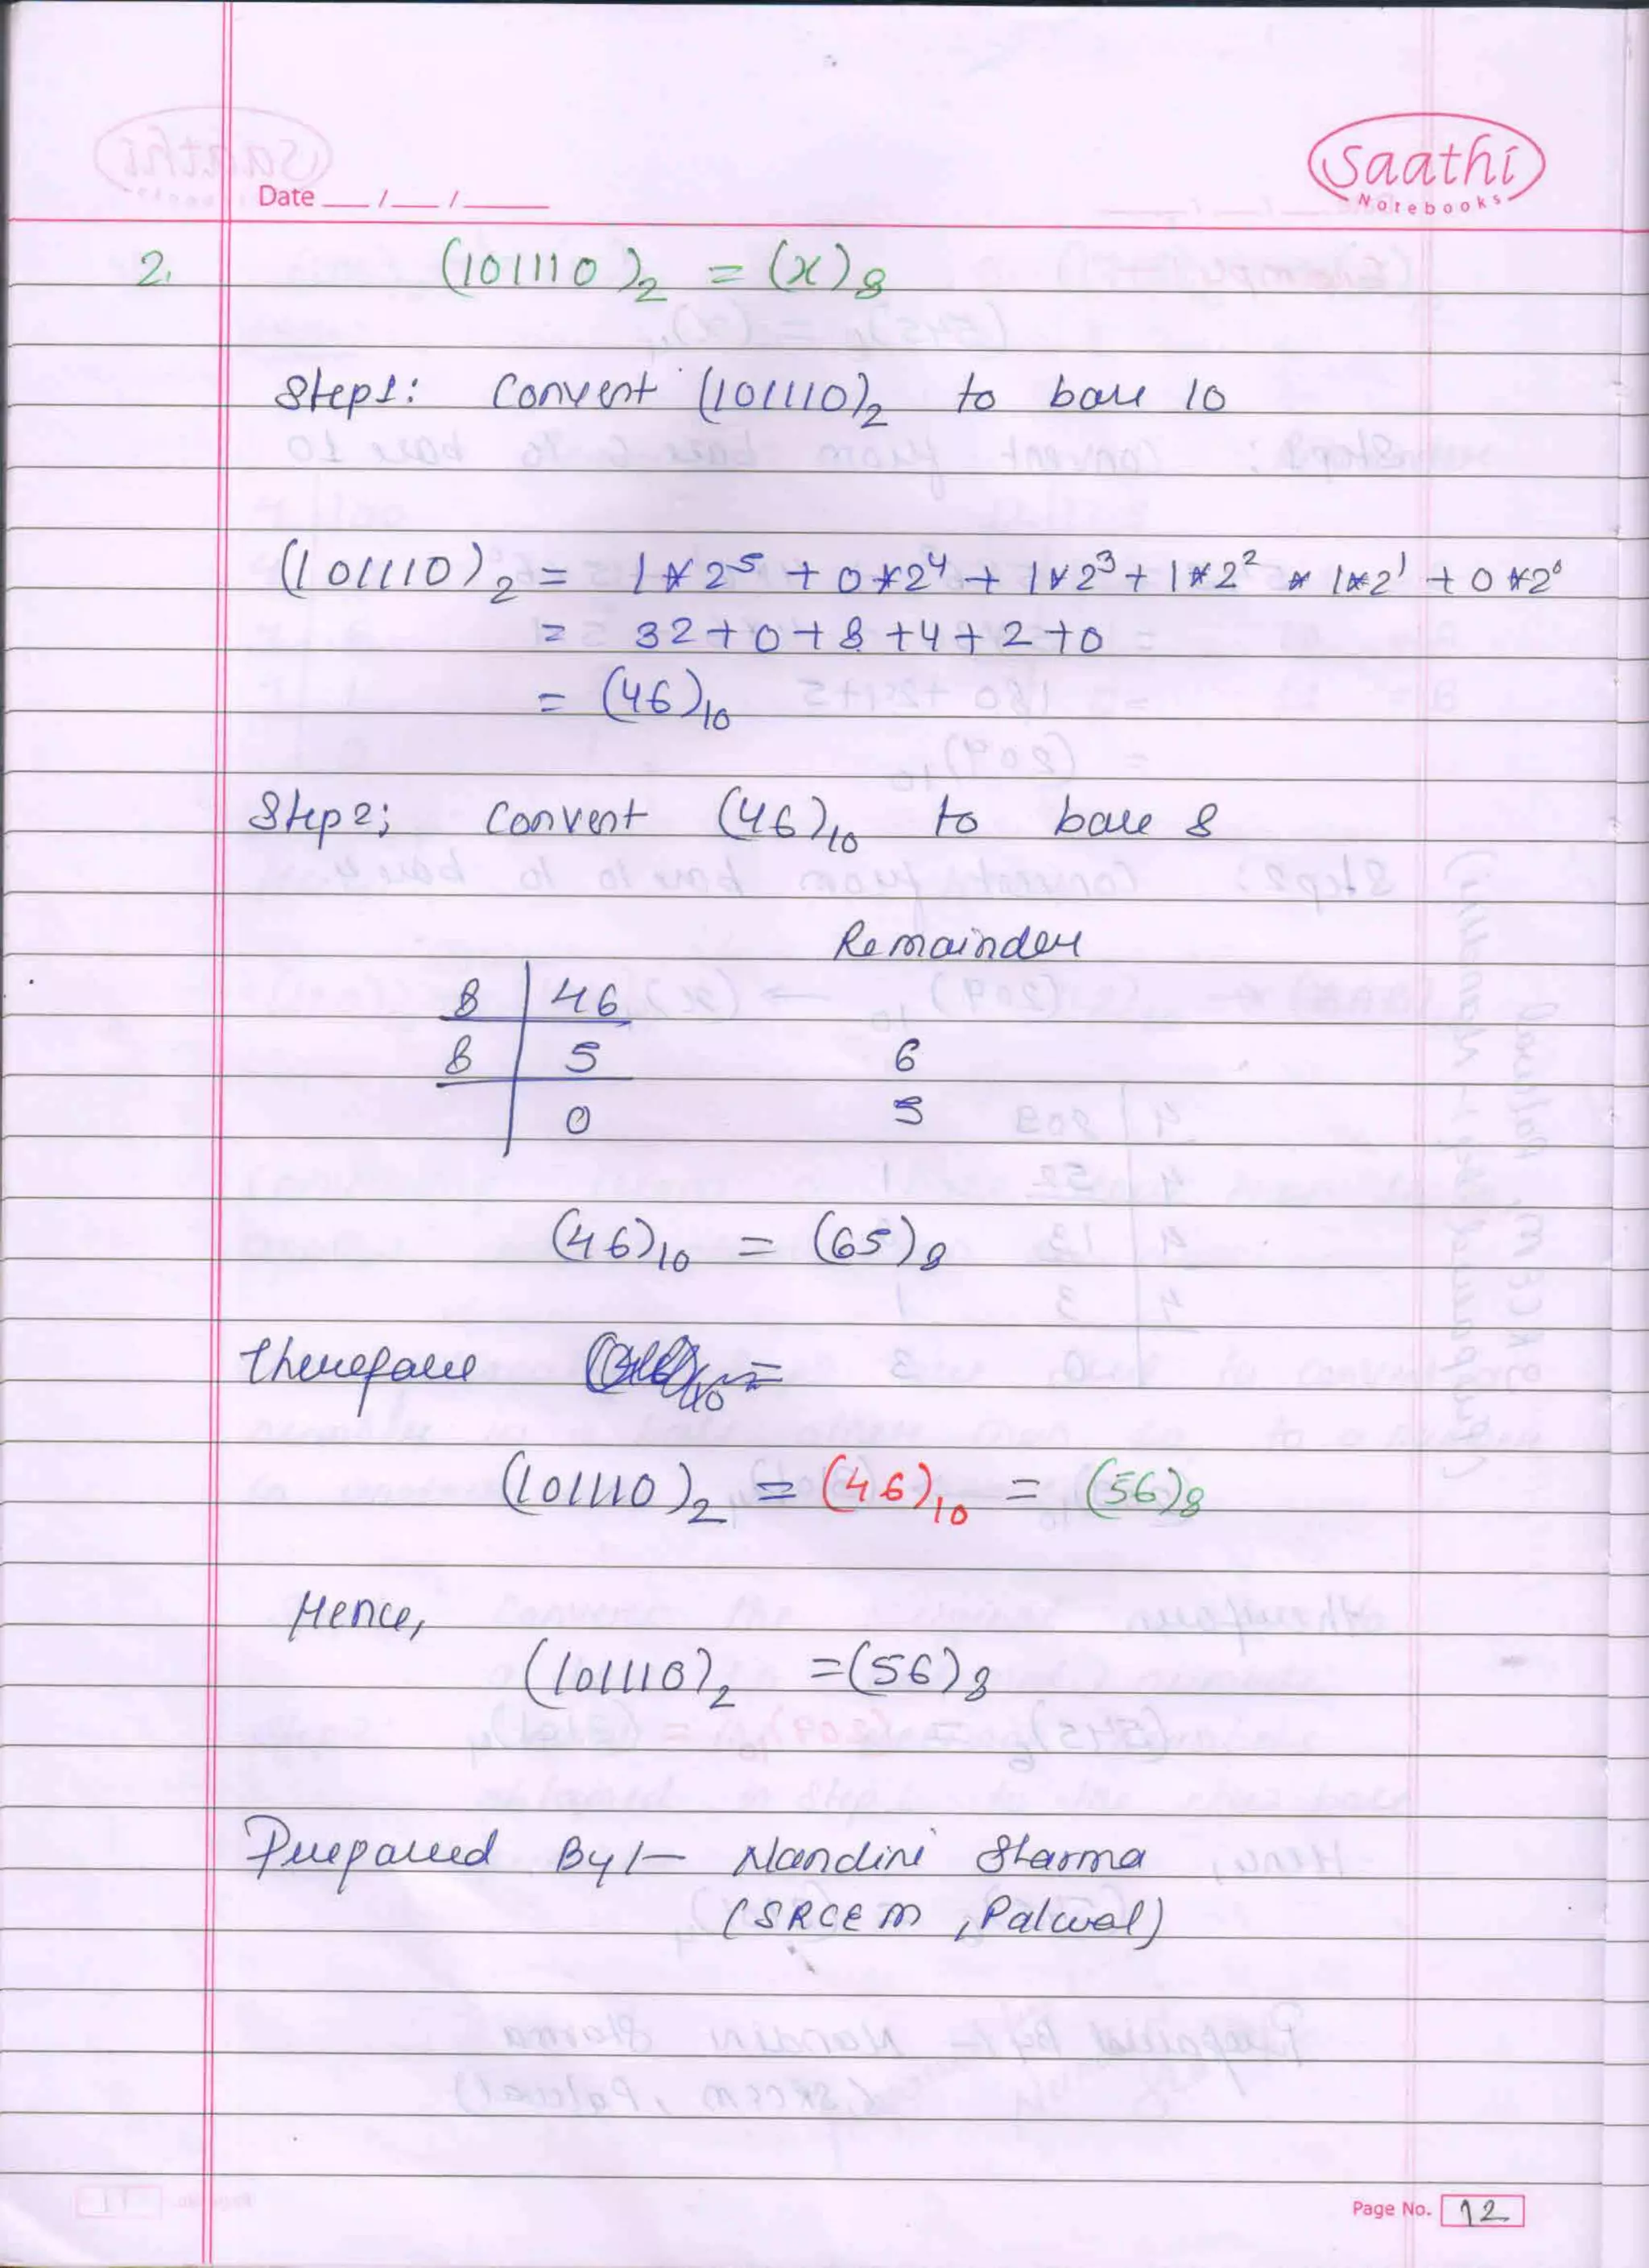 Saathi
Notebooks
Date ___ /___ /_____
2. (101110)₂ = (x)₈
Step1: Convert (101110)₂ to base 10
(101110)₂ = 1*2⁵ + 0*2⁴ + 1*2³ + 1*2² * 1*2¹ + 0*2⁰
= 32+0+8+4+2+0
= (46)₁₀
Step2; Convert (46)₁₀ to base 8
Remainder
8 | 46
8 | 5 6
0 5
(46)₁₀ = (65)₈
therefore
(101110)₂ = (46)₁₀ = (56)₈
Hence,
(101110)₂ =(56)₈
Prepared By/- Nandini Sharma
(SRCEM, Palwal)
Page No. 12